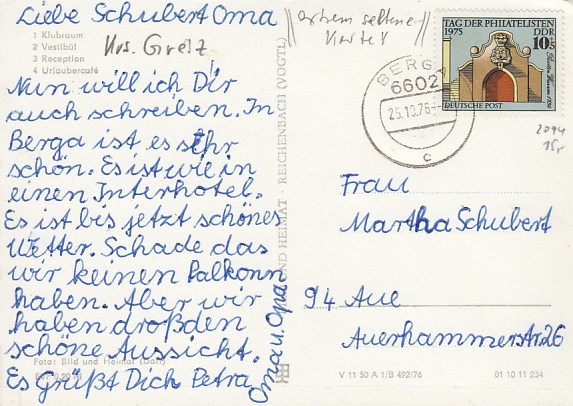 Liebe Schubert Oma
1 Klubraum
2 Vestibül
3 Reception
4 Urlaubercafé
Krs. Greiz
Nun will ich Dir
auch schreiben. In
Berga ist es sehr
schön. Es ist wie in
einen Interhotel.
Es ist bis jetzt schönes
Wetter. Schade das
wir keinen Palkonn
haben. Aber wir
haben droßden
schöne Aussicht.
Es Grüßt Dich Petra
Oma u. Opa
Foto: Bild und Heimat
UND HEIMAT · REICHENBACH (VOGTL)
extrem seltene
Karte!
TAG DER PHILATELISTEN
1975 DDR
10+5
DEUTSCHE POST
BERGA
6602
25.10.76
c
2094
15,-
Frau
Martha Schubert
94 Aue
Auerhammerstr. 26
V 11 50 A 1/B 492/76
01 10 11 234